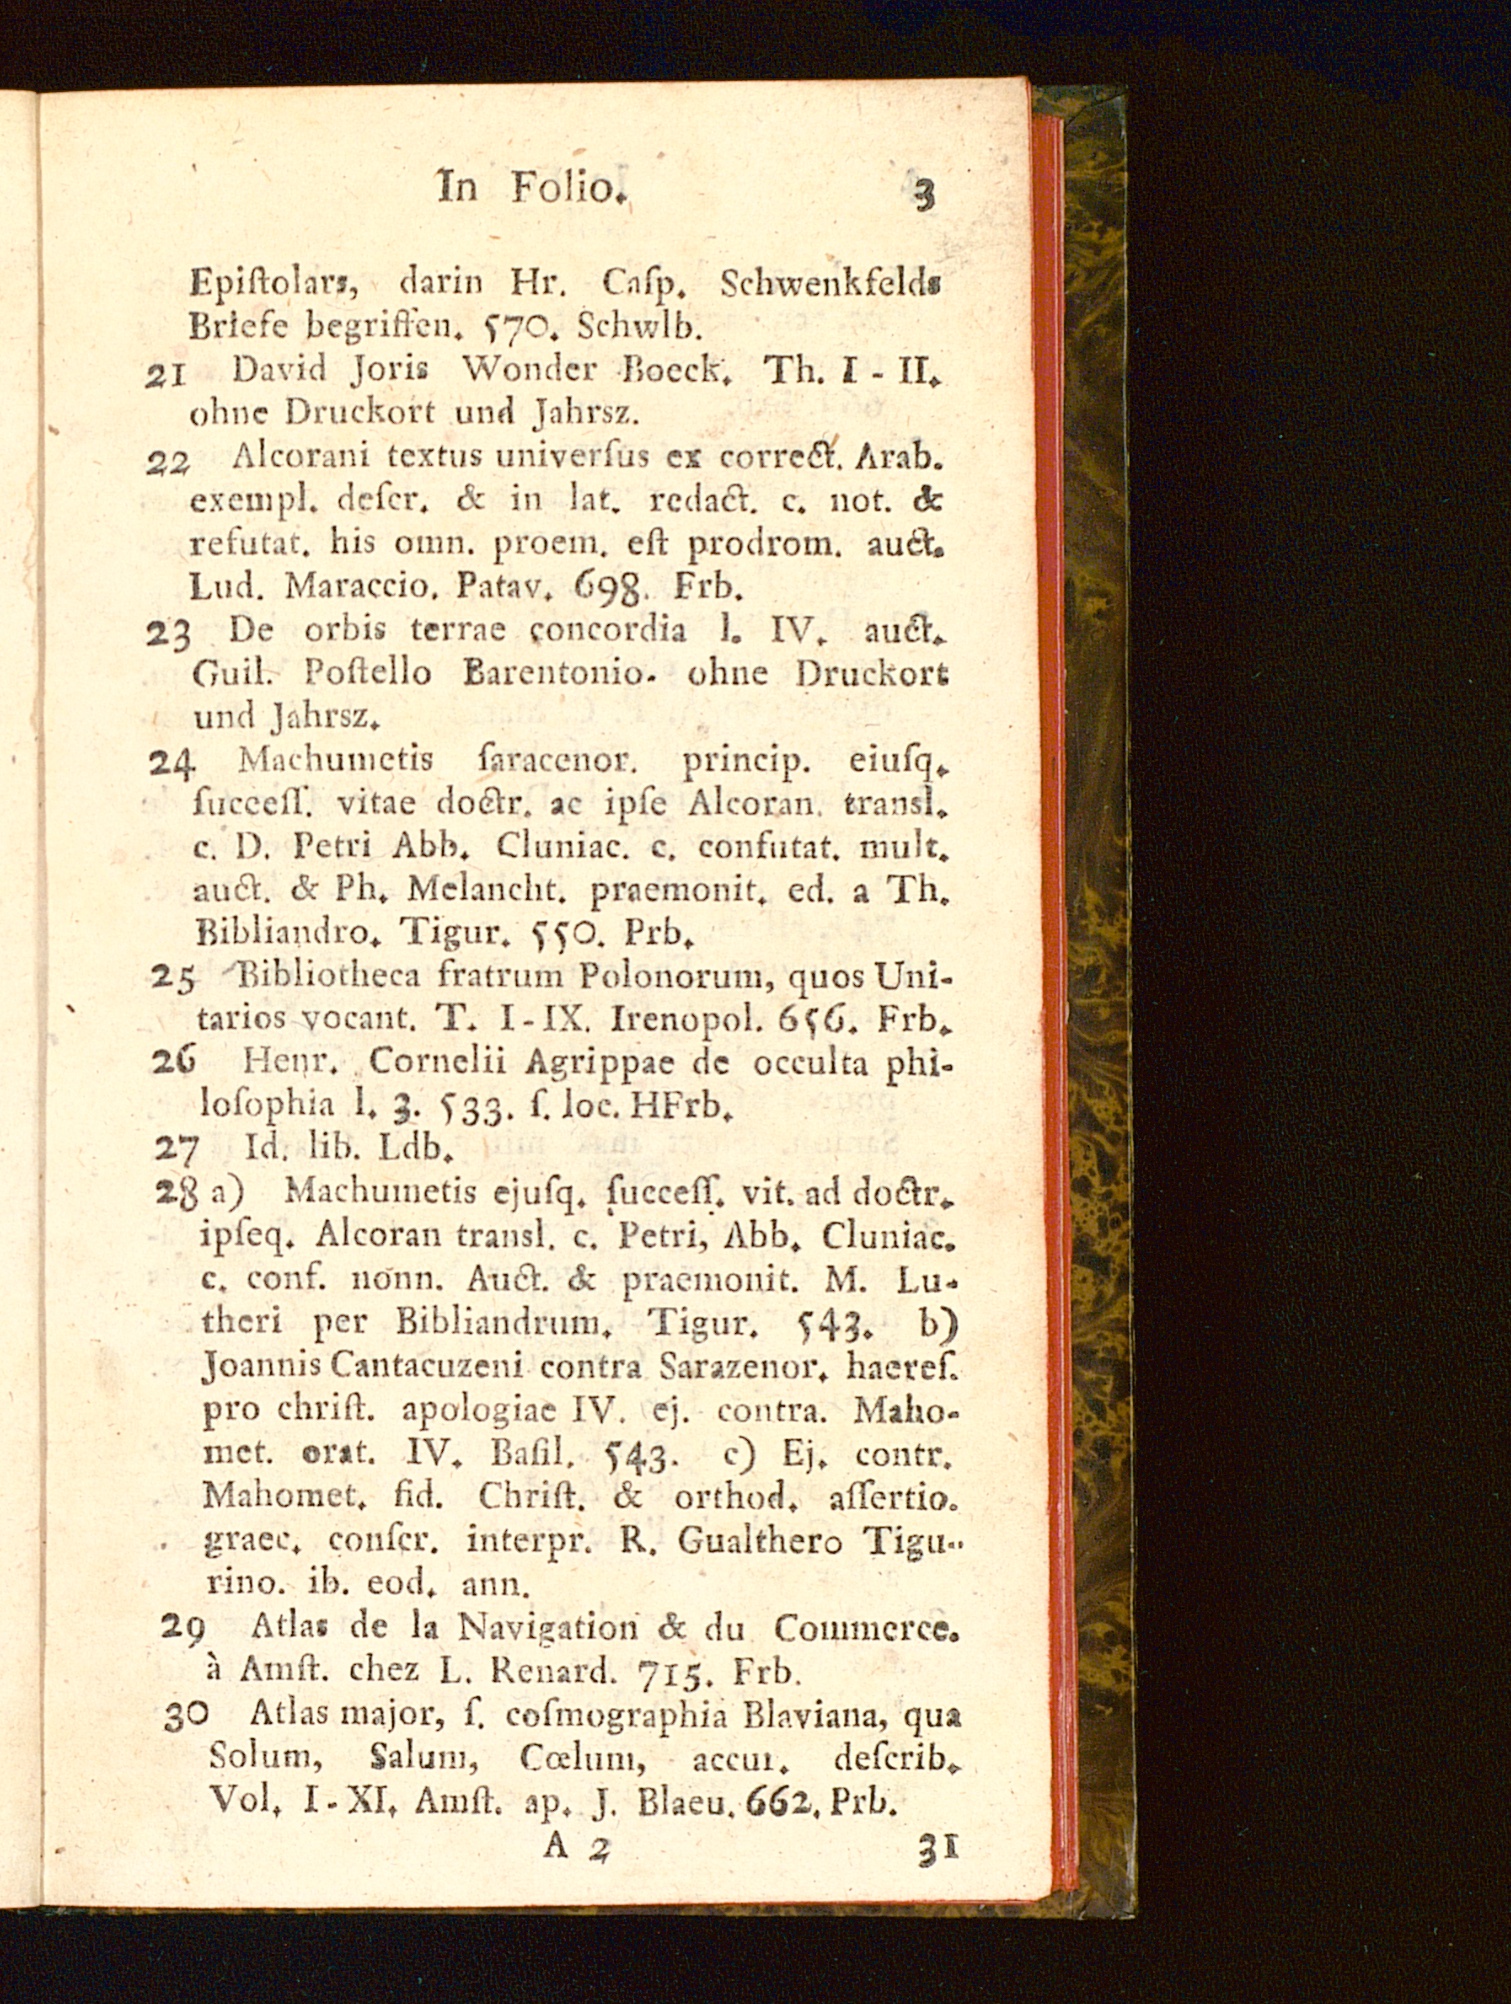 In Folio. 3
Epiſtolars, darin Hr. Caſp. Schwenkfelds
Briefe begriffen. 570. Schwlb.
21 David Joris Wonder Boeck. Th. I - II.
ohne Druckort und Jahrsz.
22 Alcorani textus univerſus ex correct. Arab.
exempl. deſcr. & in lat. redact. c. not. &
refutat. his omn. proem. eſt prodrom. auct.
Lud. Maraccio. Patav. 698. Frb.
23 De orbis terrae concordia l. IV. auct.
Guil. Poſtello Barentonio. ohne Druckort
und Jahrsz.
24 Machumetis ſaracenor. princip. eiuſq.
ſucceſſ. vitae doctr. ac ipſe Alcoran. transl.
c. D. Petri Abb. Cluniac. c. confutat. mult.
auct. & Ph. Melancht. praemonit. ed. a Th.
Bibliandro. Tigur. 550. Prb.
25 Bibliotheca fratrum Polonorum, quos Uni-
tarios vocant. T. I - IX. Irenopol. 656. Frb.
26 Henr. Cornelii Agrippae de occulta phi-
loſophia l. 3. 533. ſ. loc. HFrb.
27 Id. lib. Ldb.
28 a) Machumetis ejuſq. ſucceſſ. vit. ad doctr.
ipſeq. Alcoran transl. c. Petri, Abb. Cluniac.
c. conf. nonn. Auct. & praemonit. M. Lu-
theri per Bibliandrum. Tigur. 543. b)
Joannis Cantacuzeni contra Sarazenor. haereſ.
pro chriſt. apologiae IV. ej. contra. Maho-
met. orat. IV. Baſil. 543. c) Ej. contr.
Mahomet. fid. Chriſt. & orthod. aſſertio.
graec. conſcr. interpr. R. Gualthero Tigu-
rino. ib. eod. ann.
29 Atlas de la Navigation & du Commerce.
à Amſt. chez L. Renard. 715. Frb.
30 Atlas major, ſ. coſmographia Blaviana, qua
Solum, Salum, Cœlum, accur. deſcrib.
Vol. I - XI. Amſt. ap. J. Blaeu. 662. Prb.
A 2 31